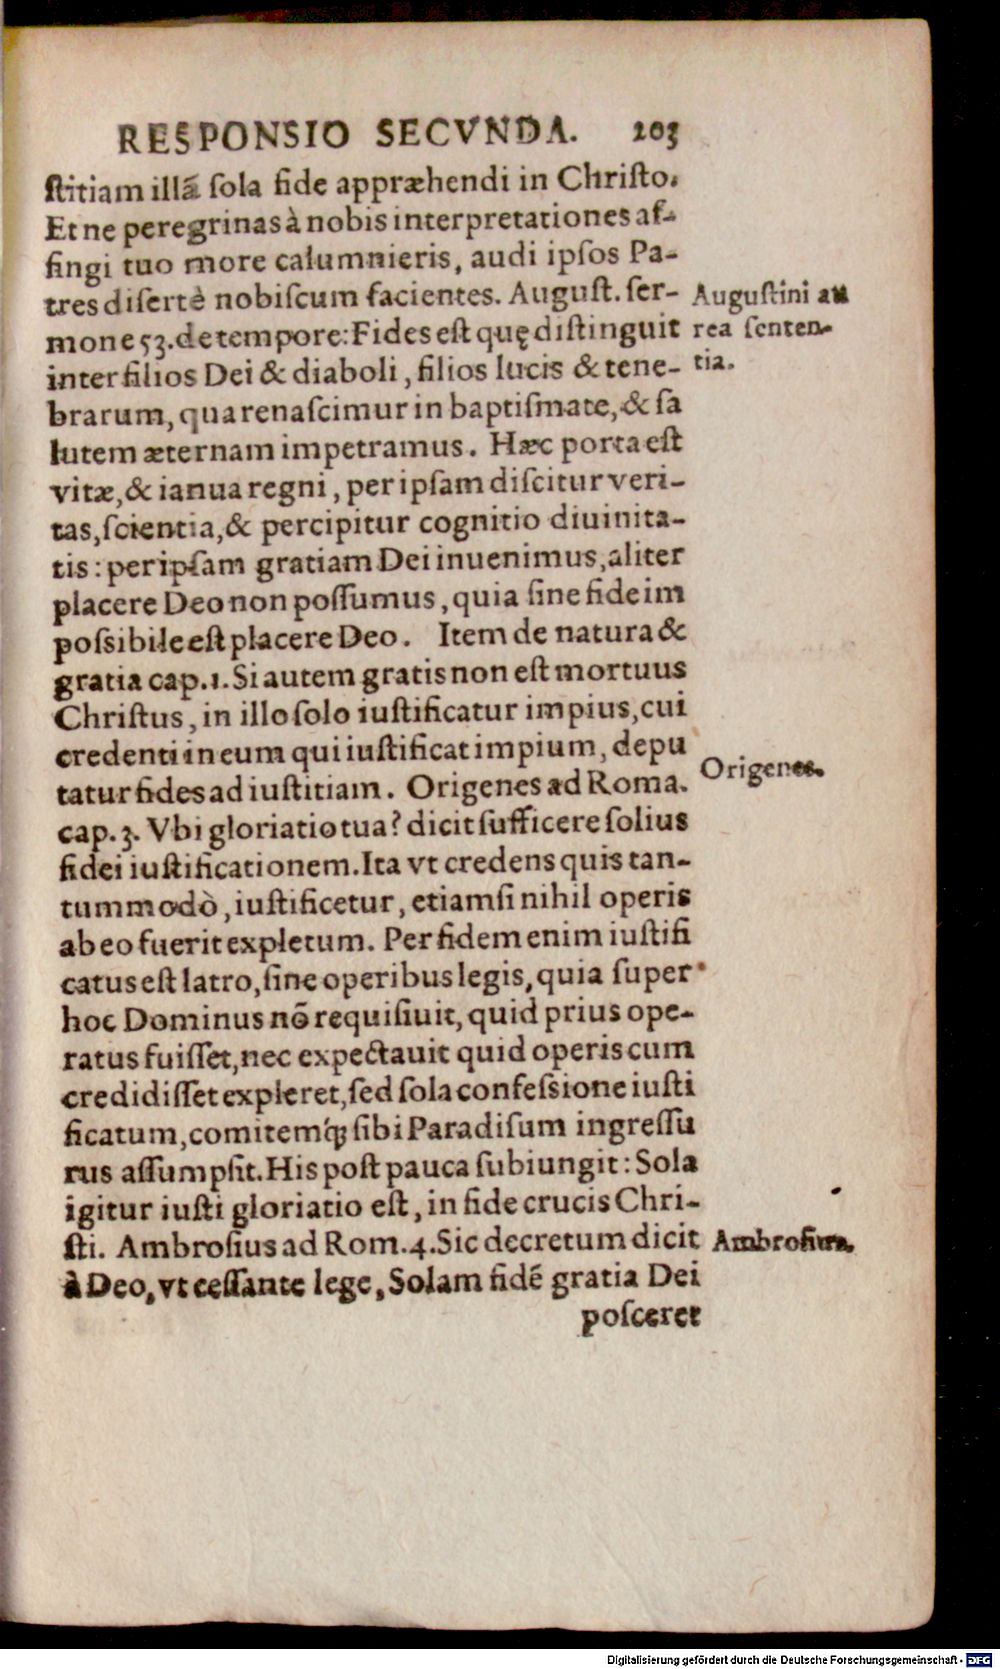 RESPONSIO SECVNDA. 203
ſtitiam illã ſola fide appræhendi in Chriſto.
Et ne peregrinas à nobis interpretationes af-
fingi tuo more calumnieris, audi ipſos Pa-
tres diſertè nobiſcum facientes. Auguſt. ſer-
mone 53. de tempore: Fides eſt quę diſtinguit
inter filios Dei & diaboli, filios lucis & tene-
brarum, qua renaſcimur in baptiſmate, & ſa
lutem æternam impetramus. Hæc porta eſt
vitæ, & ianua regni, per ipſam diſcitur veri-
tas, ſcientia, & percipitur cognitio diuinita-
tis: per ipſam gratiam Dei inuenimus, aliter
placere Deo non poſſumus, quia ſine fide im
poſsibile eſt placere Deo. Item de natura &
gratia cap. 1. Si autem gratis non eſt mortuus
Chriſtus, in illo ſolo iuſtificatur impius, cui
credenti in eum qui iuſtificat impium, depu
tatur fides ad iuſtitiam. Origenes ad Roma.
cap. 3. Vbi gloriatio tua? dicit ſufficere ſolius
fidei iuſtificationem. Ita vt credens quis tan-
tummodò, iuſtificetur, etiamſi nihil operis
ab eo fuerit expletum. Per fidem enim iuſtifi
catus eſt latro, ſine operibus legis, quia ſuper
hoc Dominus nõ requiſiuit, quid prius ope-
ratus fuiſſet, nec expectauit quid operis cum
credidiſſet expleret, ſed ſola confeſsione iuſti
ficatum, comitemq́; ſibi Paradiſum ingreſſu
rus aſſumpſit. His poſt pauca ſubiungit: Sola
igitur iuſti gloriatio eſt, in fide crucis Chri-
ſti. Ambroſius ad Rom. 4. Sic decretum dicit
à Deo, vt ceſſante lege, Solam fidẽ gratia Dei
poſceret
Auguſtini au
rea ſenten-
tia.
Origenes.
Ambroſius.
Digitalisierung gefördert durch die Deutsche Forschungsgemeinschaft - DFG